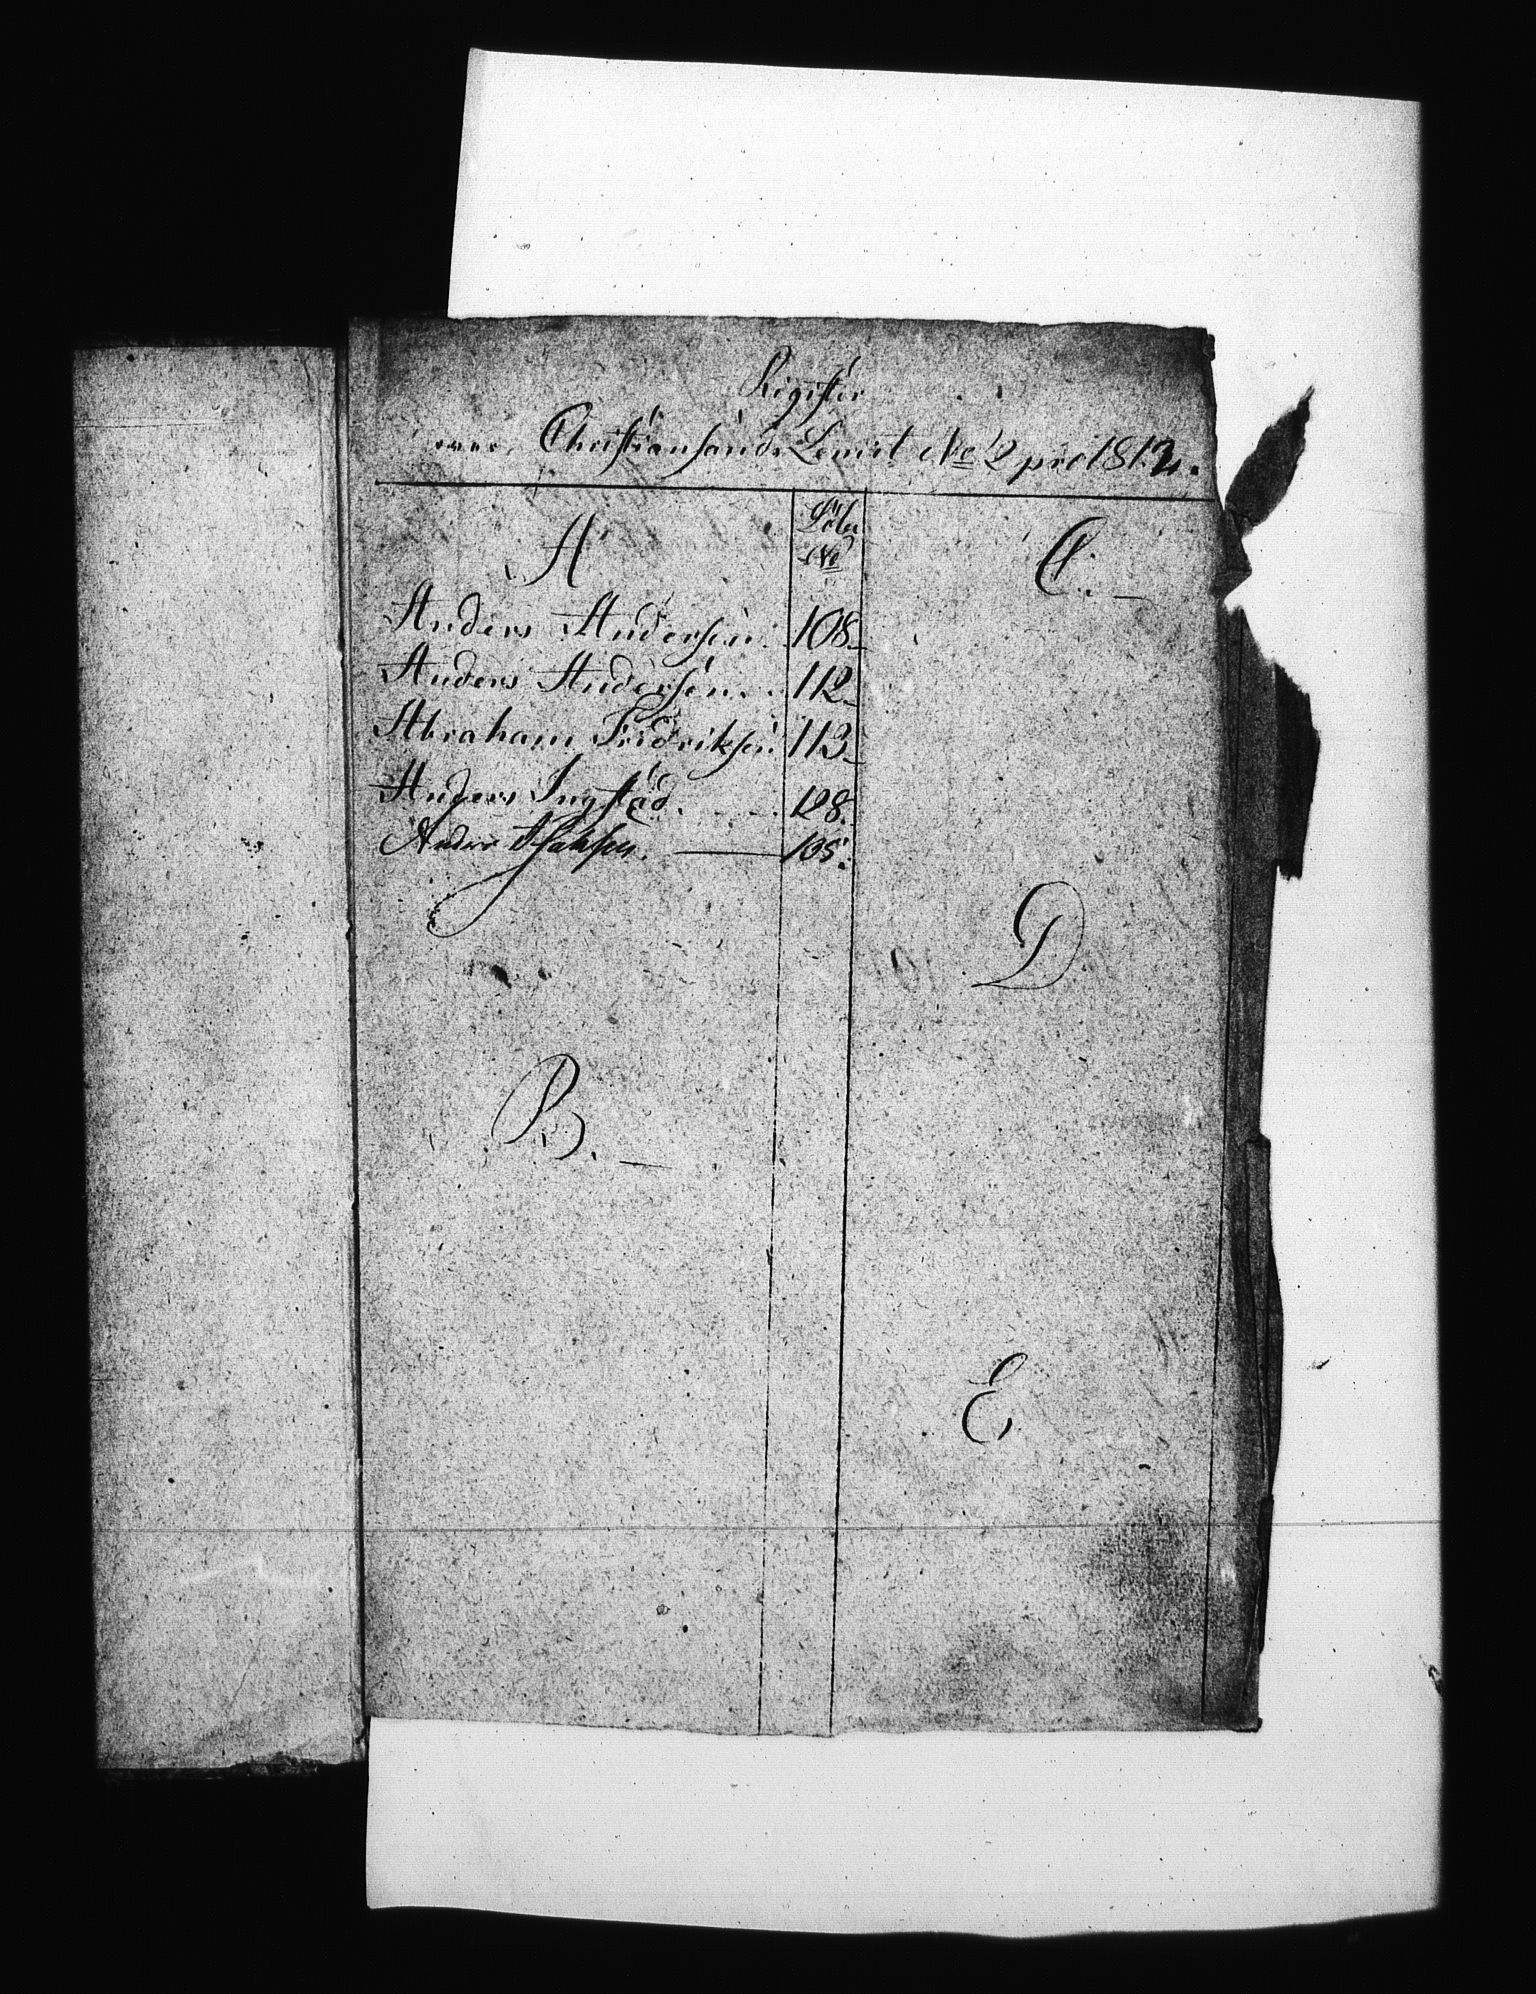 Register
over Christiansands Limit No 2 pro 1812.
A
Löbe
No
Anders Andersen. 108
Anders Andersen. 112
Abraham Fridriksen 113
Anders Ingstad. 128.
Anders Isaksen. 105.
B.
C.
D
E